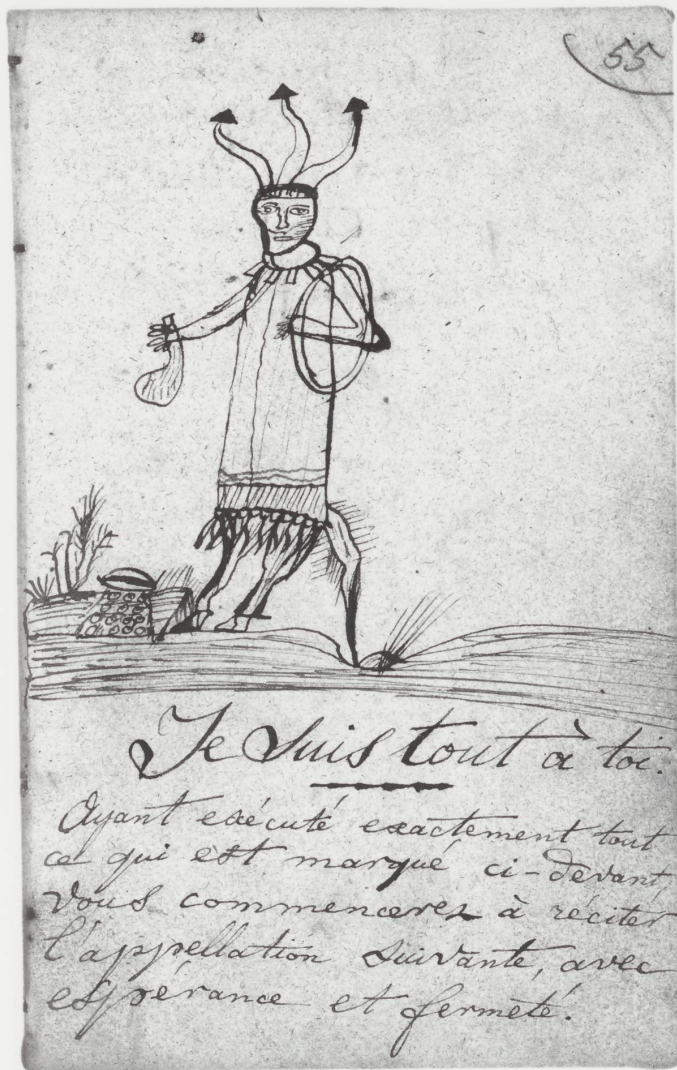 55
Je suis tout à toi.
Ayant exécuté exactement tout
ce qui est marqué ci-devant,
vous commencerez à réciter
l'appellation suivante, avec
espérance et fermeté.